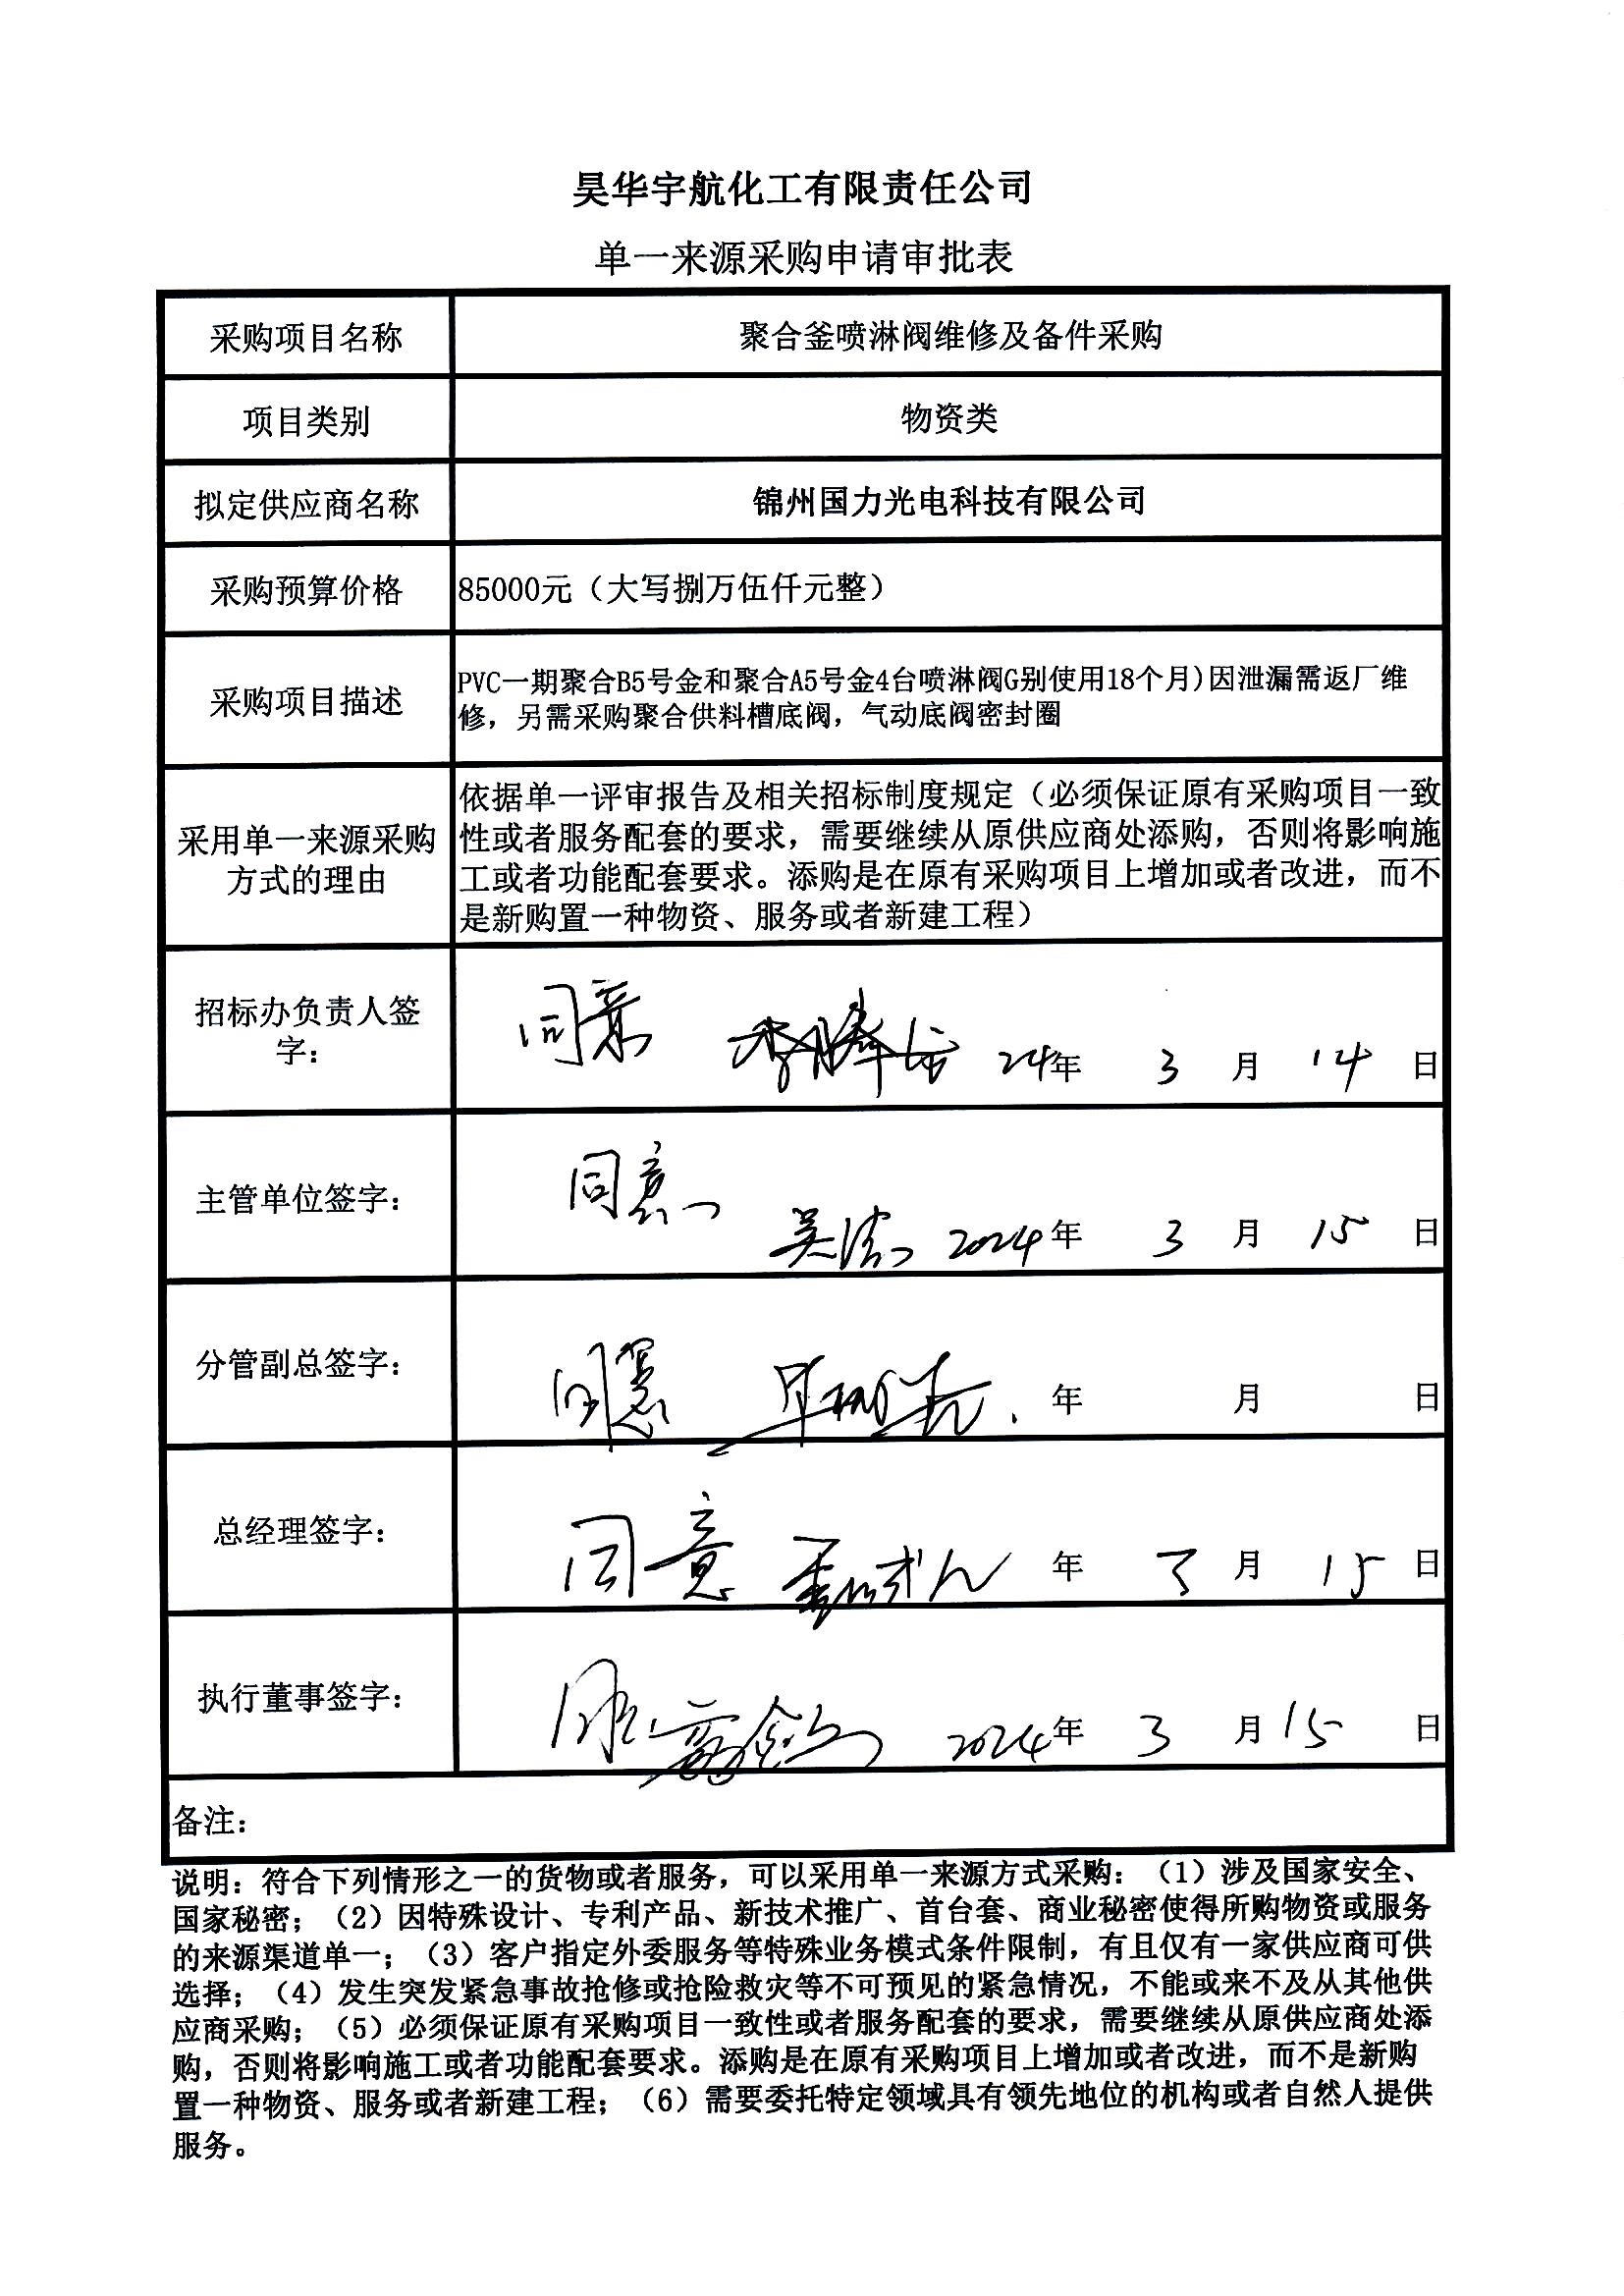 昊华宇航化工有限责任公司
单一来源采购申请审批表
采购项目名称
聚合釜喷淋阀维修及备件采购
项目类别
物资类
拟定供应商名称
锦州国力光电科技有限公司
采购预算价格
85000元（大写捌万伍仟元整）
采购项目描述
PVC一期聚合B5号金和聚合A5号金4台喷淋阀G别使用18个月)因泄漏需返厂维
修，另需采购聚合供料槽底阀，气动底阀密封圈
采用单一来源采购
方式的理由
依据单一评审报告及相关招标制度规定（必须保证原有采购项目一致
性或者服务配套的要求，需要继续从原供应商处添购，否则将影响施
工或者功能配套要求。添购是在原有采购项目上增加或者改进，而不
是新购置一种物资、服务或者新建工程）
招标办负责人签
字：
同意 24年 3 月 14 日
主管单位签字：
同意
吴 2024年 3 月 15 日
分管副总签字：
同意 年 月 日
总经理签字：
同意 年 3 月 15 日
执行董事签字：
2024年 3 月 15 日
备注：
说明：符合下列情形之一的货物或者服务，可以采用单一来源方式采购：（1）涉及国家安全、
国家秘密；（2）因特殊设计、专利产品、新技术推广、首台套、商业秘密使得所购物资或服务
的来源渠道单一；（3）客户指定外委服务等特殊业务模式条件限制，有且仅有一家供应商可供
选择；（4）发生突发紧急事故抢修或抢险救灾等不可预见的紧急情况，不能或来不及从其他供
应商采购；（5）必须保证原有采购项目一致性或者服务配套的要求，需要继续从原供应商处添
购，否则将影响施工或者功能配套要求。添购是在原有采购项目上增加或者改进，而不是新购
置一种物资、服务或者新建工程；（6）需要委托特定领域具有领先地位的机构或者自然人提供
服务。